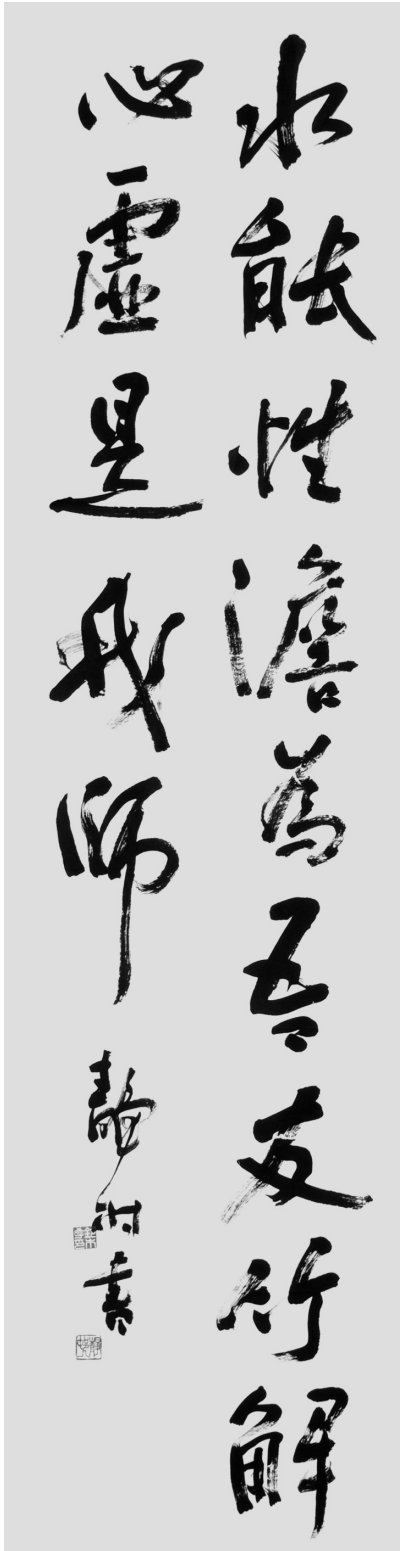 水能性澹為吾友竹解
心虛是我師
靜書